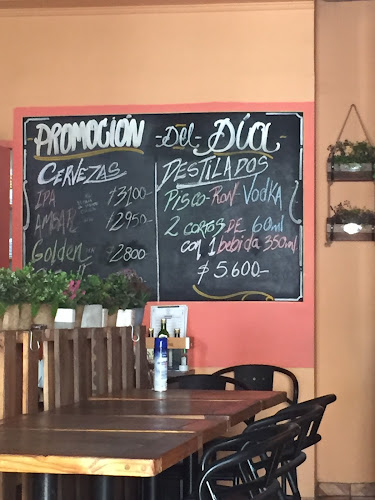 PROMOCIÓN -Del- Día-
CERVEZAS
IPA $3100-
AMBAR $2950-
Golden $2800-
DESTILADOS
PISCO-Ron-VODKA
2 CORTOS DE 60ml
con 1 bebida 350ml
$5.600-